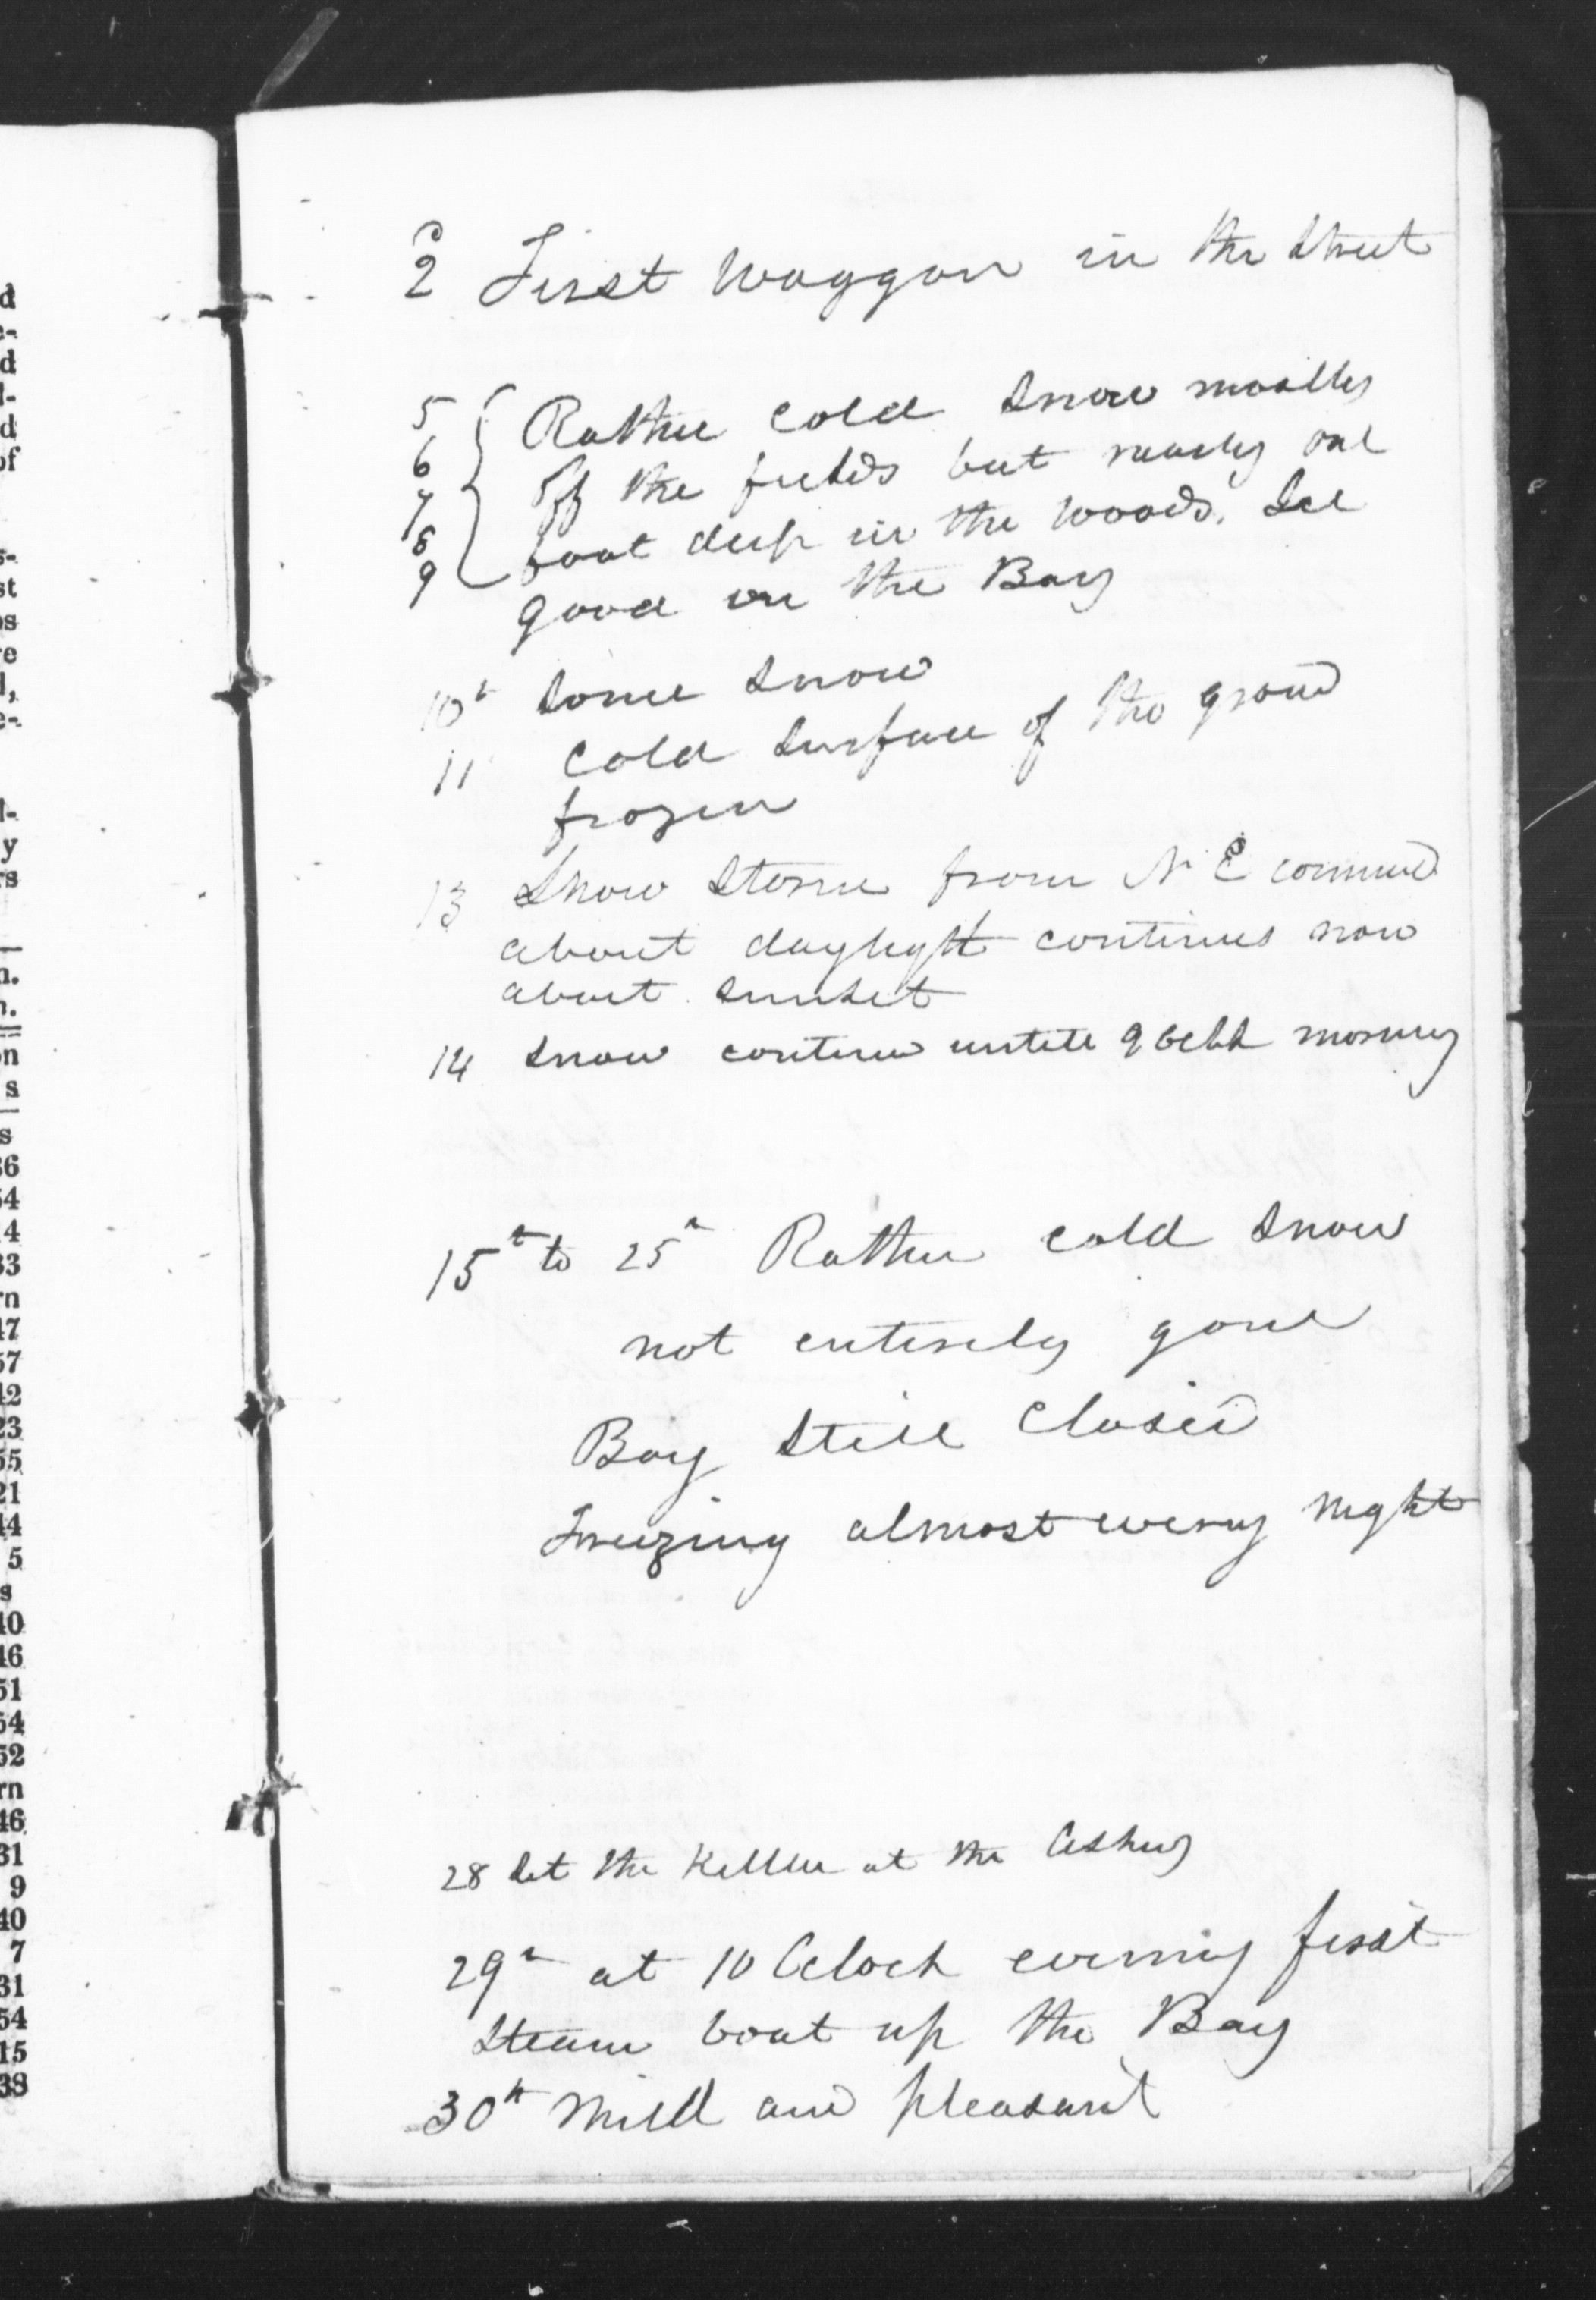 2 First Waggon in the Street
5 Rather Cold Snow mostly
6 off the fields but nearly one
7
8 foot deep in the woods. Ice
9 good on the Bay
10th Some Snow
11 Cold Surface of the ground
frozen
13 Snow Storm from N E commed
about daylight continues now
about sunset
14 Snow continu untill 9 oclk morning
15th to 25th Rather cold Snow
not entirely gone
Bay Still Closed
Freezing almost every night
28 Set the Kettle at the Ashery
29th at 10 Oclock evening first
Steam boat up the Bay
30th Mild and pleasant
d
e-
d
d
of
s-
st
os
re
l,
e-
l-
y
rs
n.
n.
on
s
s
36
54
4
33
rn
47
57
42
23
55
21
44
5
s
40
46
51
54
52
rn
46
31
9
40
7
31
54
15
38